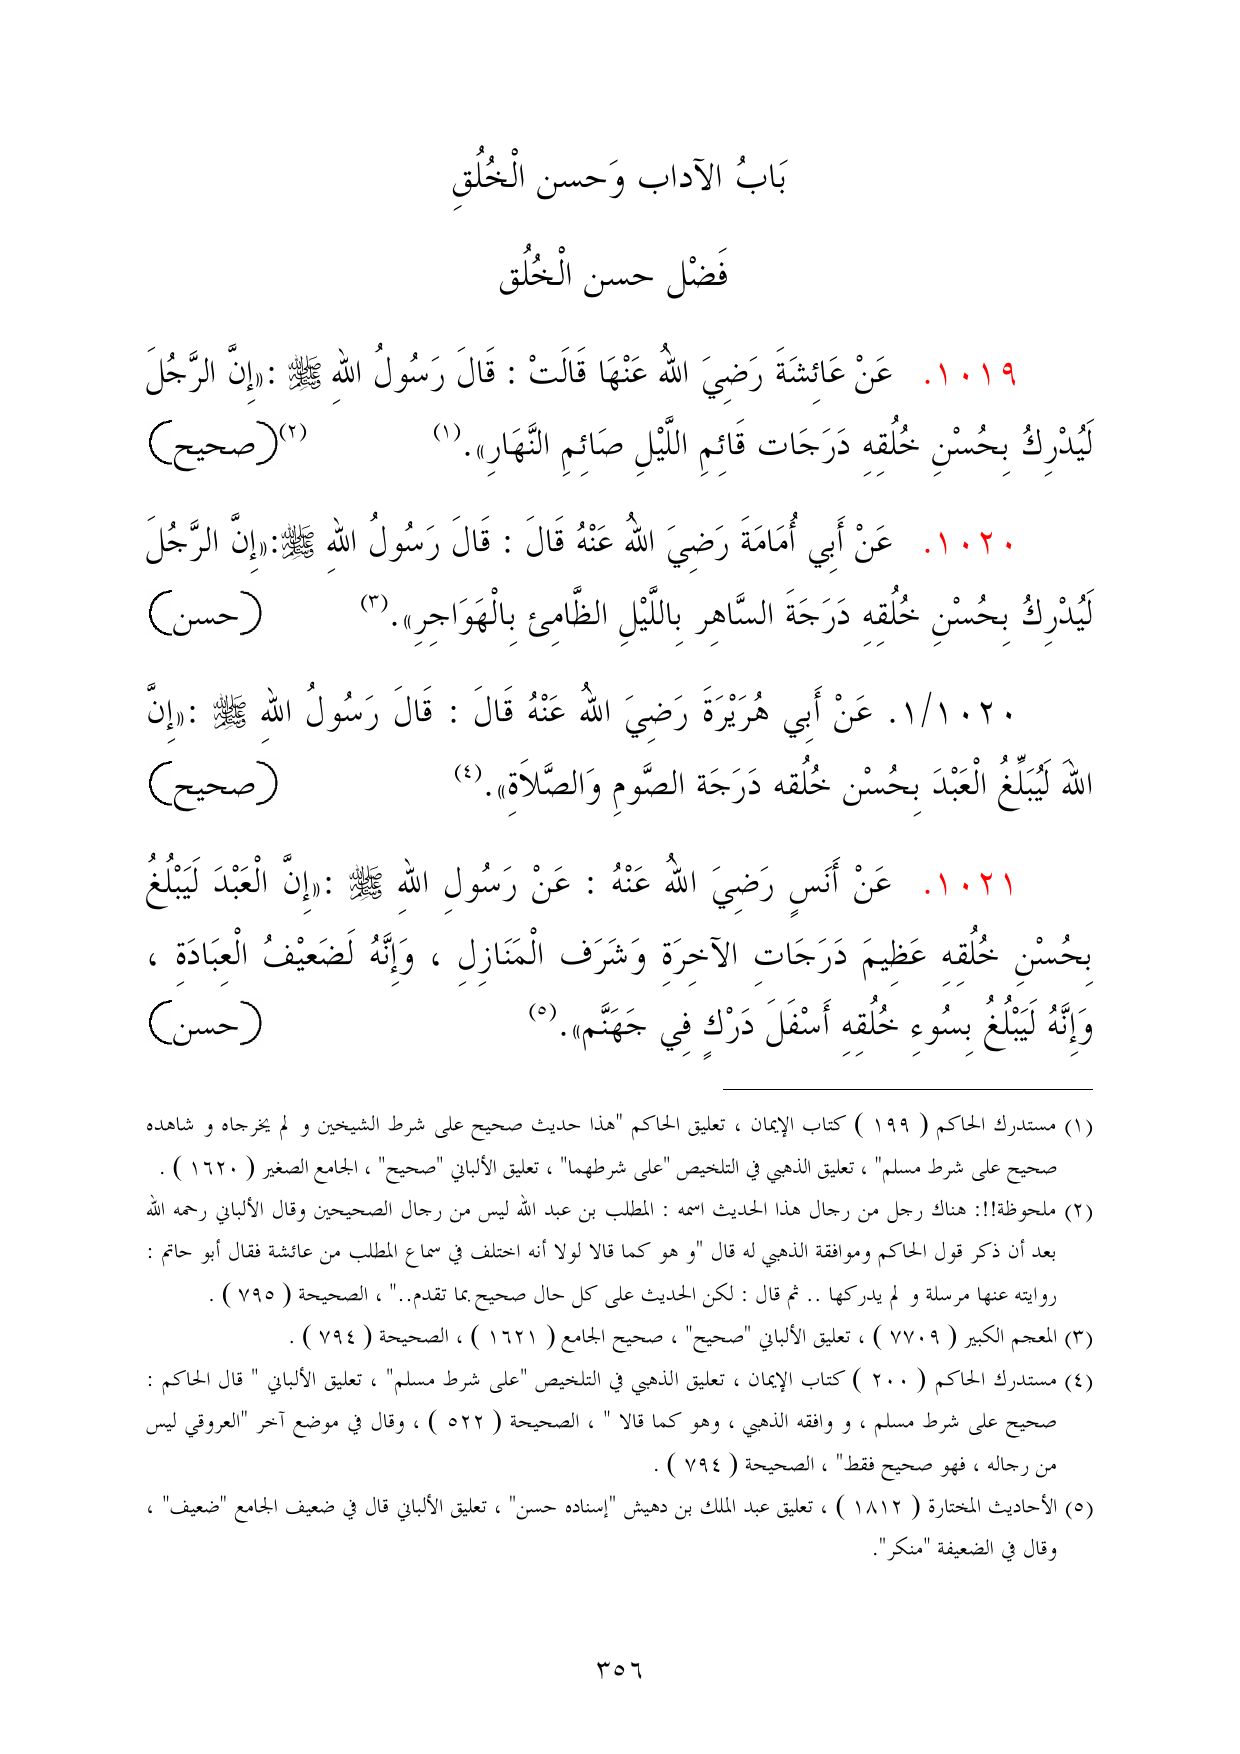 بَابُ الآداب وَحسن الْخُلُقِ
فَضْل حسن الْخُلُق
١٠١٩. عَنْ عَائِشَةَ رَضِيَ اللهُ عَنْهَا قَالَتْ : قَالَ رَسُولُ اللهِ ﷺ :«إِنَّ الرَّجُلَ
لَيُدْرِكُ بِحُسْنِ خُلُقِهِ دَرَجَات قَائِمِ اللَّيْلِ صَائِمِ النَّهَارِ».(١) (٢)(صحيح)
١٠٢٠. عَنْ أَبِي أُمَامَةَ رَضِيَ اللهُ عَنْهُ قَالَ : قَالَ رَسُولُ اللهِ ﷺ:«إِنَّ الرَّجُلَ
لَيُدْرِكُ بِحُسْنِ خُلُقِهِ دَرَجَةَ السَّاهِرِ بِاللَّيْلِ الظَّامِئِ بِالْهَوَاجِرِ».(٣) (حسن)
١/١٠٢٠. عَنْ أَبِي هُرَيْرَةَ رَضِيَ اللهُ عَنْهُ قَالَ : قَالَ رَسُولُ اللهِ ﷺ :«إِنَّ
اللهَ لَيُبَلِّغُ الْعَبْدَ بِحُسْن خُلُقه دَرَجَة الصَّومِ وَالصَّلاَةِ».(٤) (صحيح)
١٠٢١. عَنْ أَنَسٍ رَضِيَ اللهُ عَنْهُ : عَنْ رَسُولِ اللهِ ﷺ :«إِنَّ الْعَبْدَ لَيَبْلُغُ
بِحُسْنِ خُلُقِهِ عَظِيمَ دَرَجَاتِ الآخِرَةِ وَشَرَف الْمَنَازِلِ ، وَإِنَّهُ لَضَعِيْفُ الْعِبَادَةِ ،
وَإِنَّهُ لَيَبْلُغُ بِسُوءِ خُلُقِهِ أَسْفَلَ دَرْكٍ فِي جَهَنَّم».(٥) (حسن)
(١) مستدرك الحاكم ( ١٩٩ ) كتاب الإيمان ، تعليق الحاكم "هذا حديث صحيح على شرط الشيخين و لم يخرجاه و شاهده
صحيح على شرط مسلم" ، تعليق الذهبي في التلخيص "على شرطهما" ، تعليق الألباني "صحيح" ، الجامع الصغير ( ١٦٢٠ ) .
(٢) ملحوظة!!: هناك رجل من رجال هذا الحديث اسمه : المطلب بن عبد الله ليس من رجال الصحيحين وقال الألباني رحمه الله
بعد أن ذكر قول الحاكم وموافقة الذهبي له قال "و هو كما قالا لولا أنه اختلف في سماع المطلب من عائشة فقال أبو حاتم :
روايته عنها مرسلة و لم يدركها .. ثم قال : لكن الحديث على كل حال صحيح بما تقدم.." ، الصحيحة ( ٧٩٥ ) .
(٣) المعجم الكبير ( ٧٧٠٩ ) ، تعليق الألباني "صحيح" ، صحيح الجامع ( ١٦٢١ ) ، الصحيحة ( ٧٩٤ ) .
(٤) مستدرك الحاكم ( ٢٠٠ ) كتاب الإيمان ، تعليق الذهبي في التلخيص "على شرط مسلم" ، تعليق الألباني " قال الحاكم :
صحيح على شرط مسلم ، و وافقه الذهبي ، وهو كما قالا " ، الصحيحة ( ٥٢٢ ) ، وقال في موضع آخر "العروقي ليس
من رجاله ، فهو صحيح فقط" ، الصحيحة ( ٧٩٤ ) .
(٥) الأحاديث المختارة ( ١٨١٢ ) ، تعليق عبد الملك بن دهيش "إسناده حسن" ، تعليق الألباني قال في ضعيف الجامع "ضعيف" ،
وقال في الضعيفة "منكر".
٣٥٦